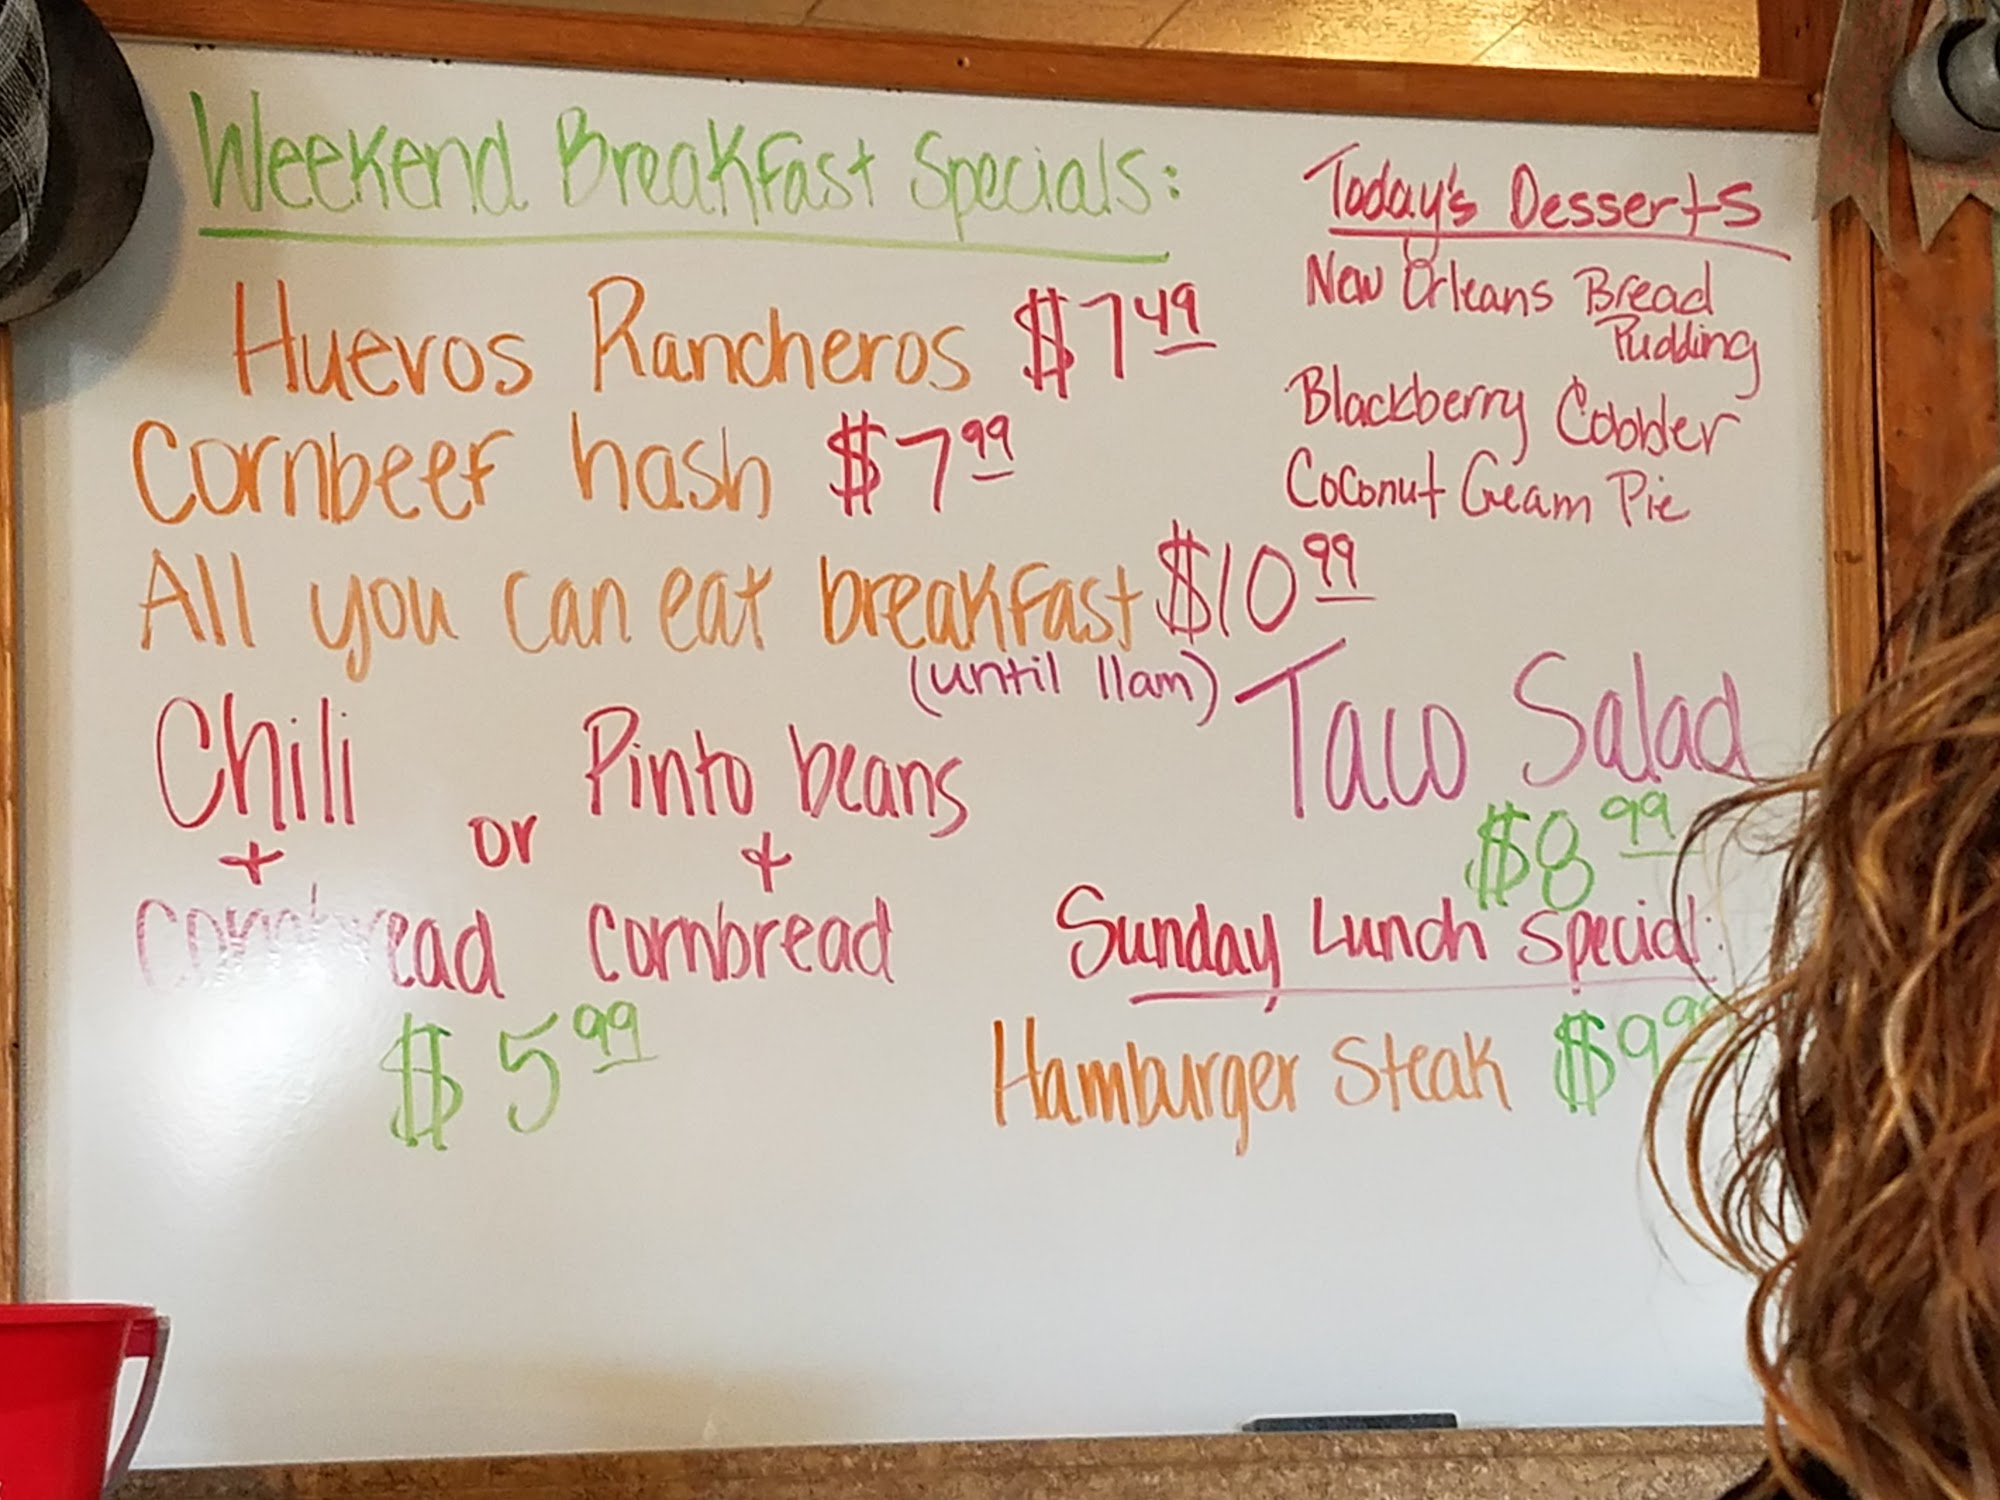 Weekend Breakfast Specials:
Huevos Rancheros $7 49
Cornbeef hash $7 99
All you can eat breakfast $10 99
(until 11am)
Chili or Pinto beans
+ +
cornbread cornbread
$5 99
Today's Desserts
New Orleans Bread
Pudding
Blackberry Cobbler
Coconut Cream Pie
Taco Salad
$8 99
Sunday Lunch Special:
Hamburger Steak $9 99